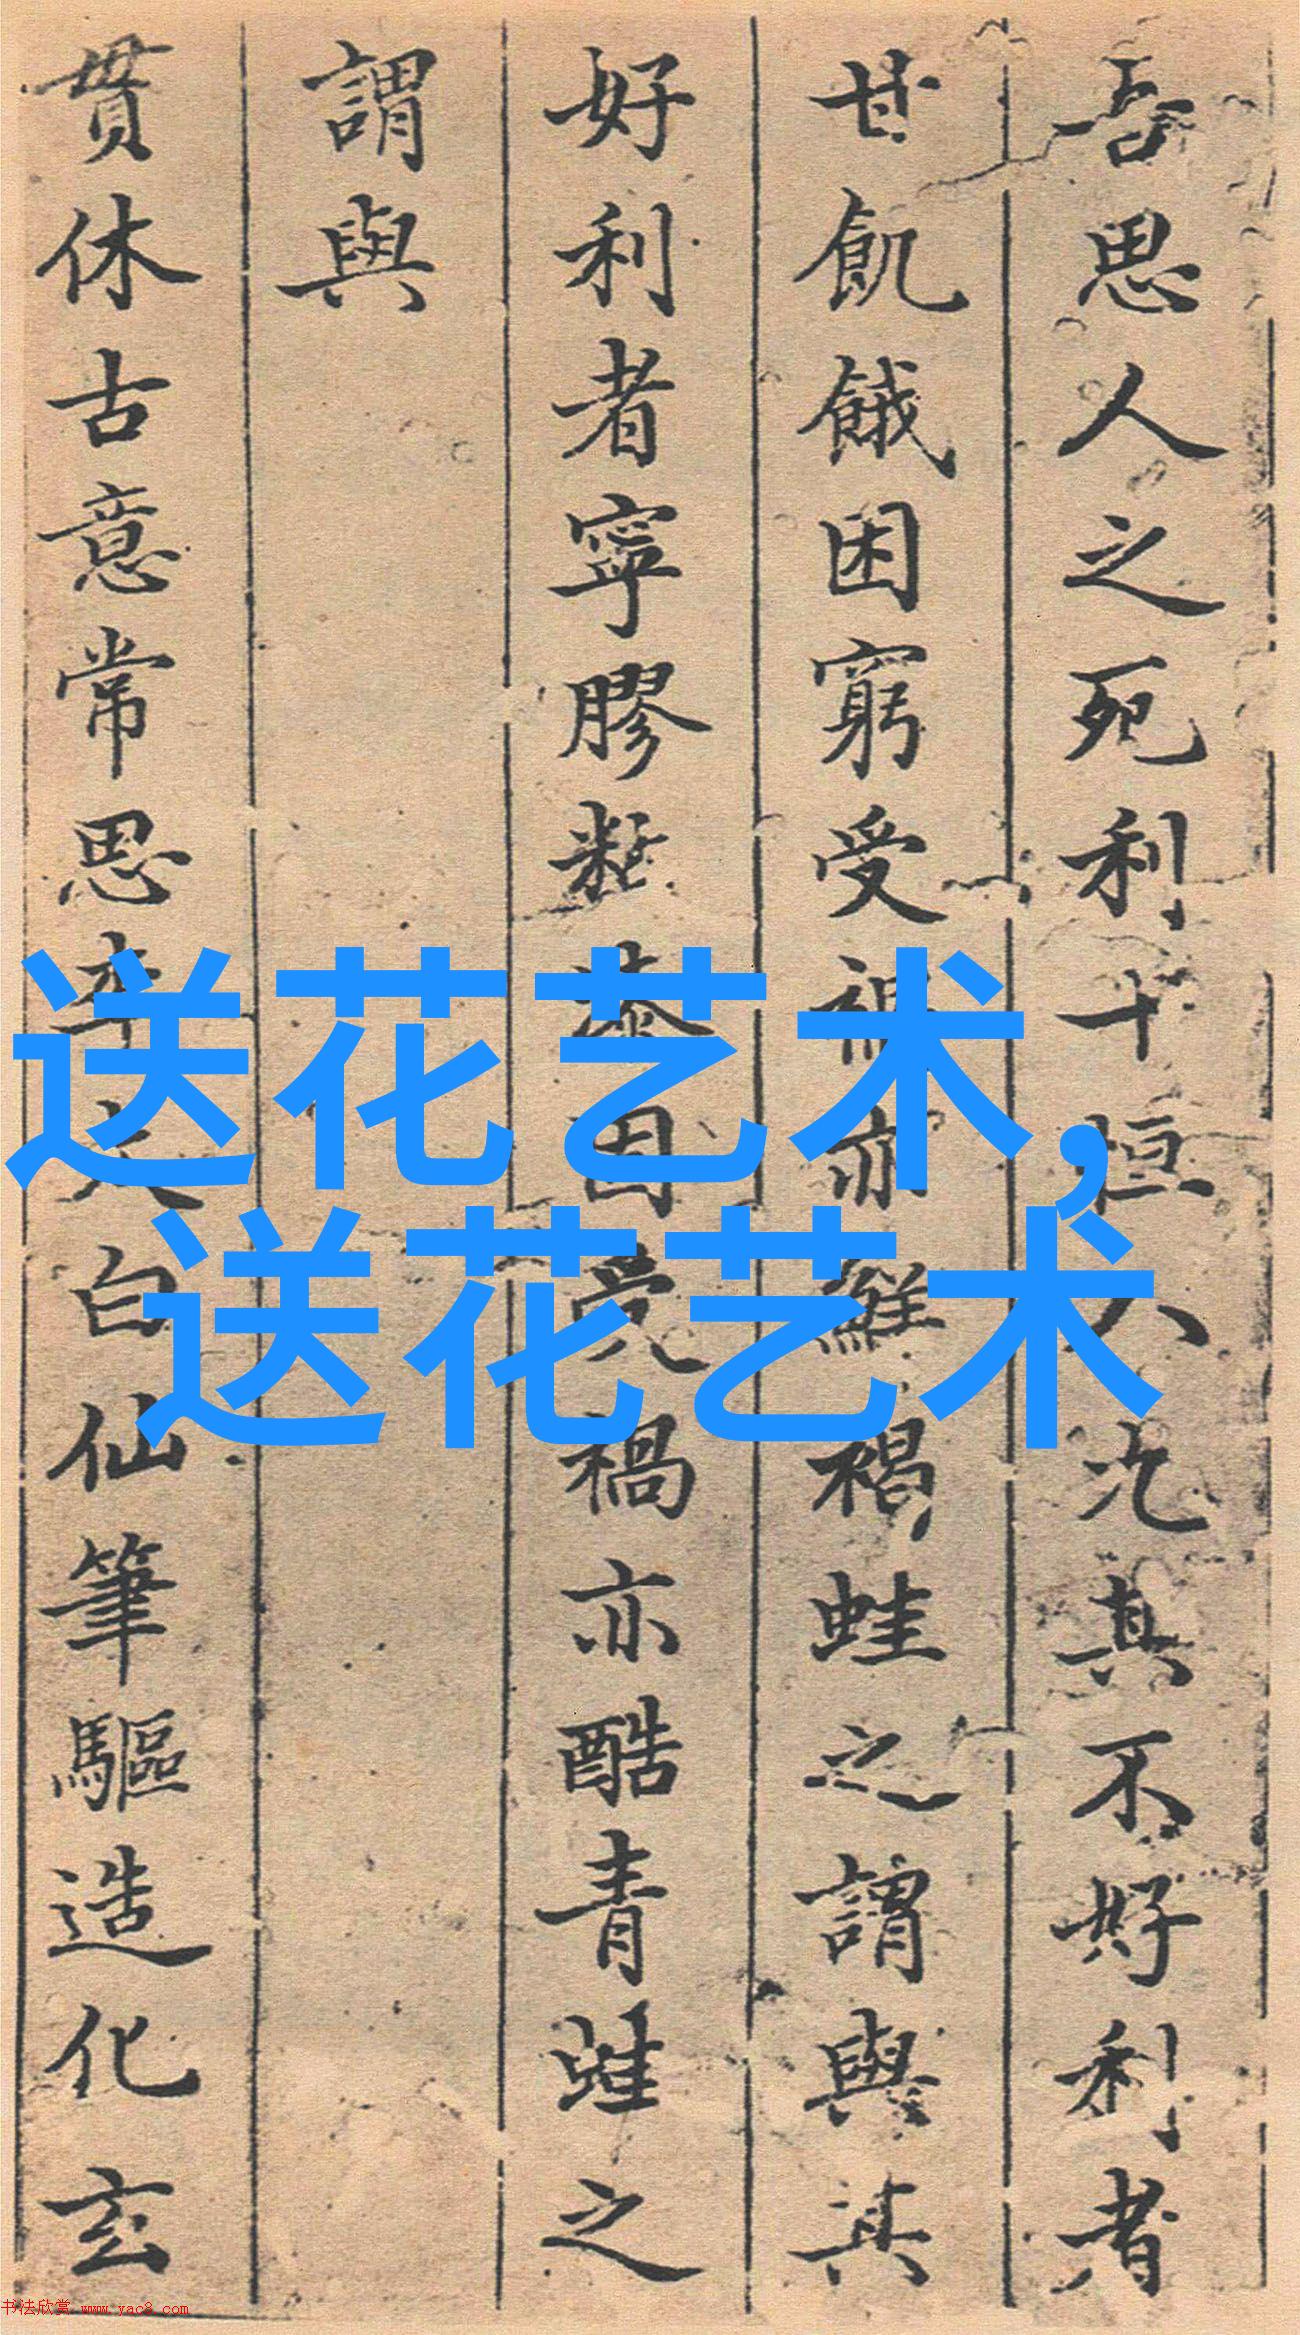 吾思人之死利十恒人汔其不好利者
甘飢餓困窮受禍亦鮮褐蛙之謂與其
好利者寧膠黏漆固受禍亦酷青蛙之
謂與
貫休古意常思李太白仙筆驅造化玄
送花艺术,
送花艺术
书法欣赏 www.yac8.com